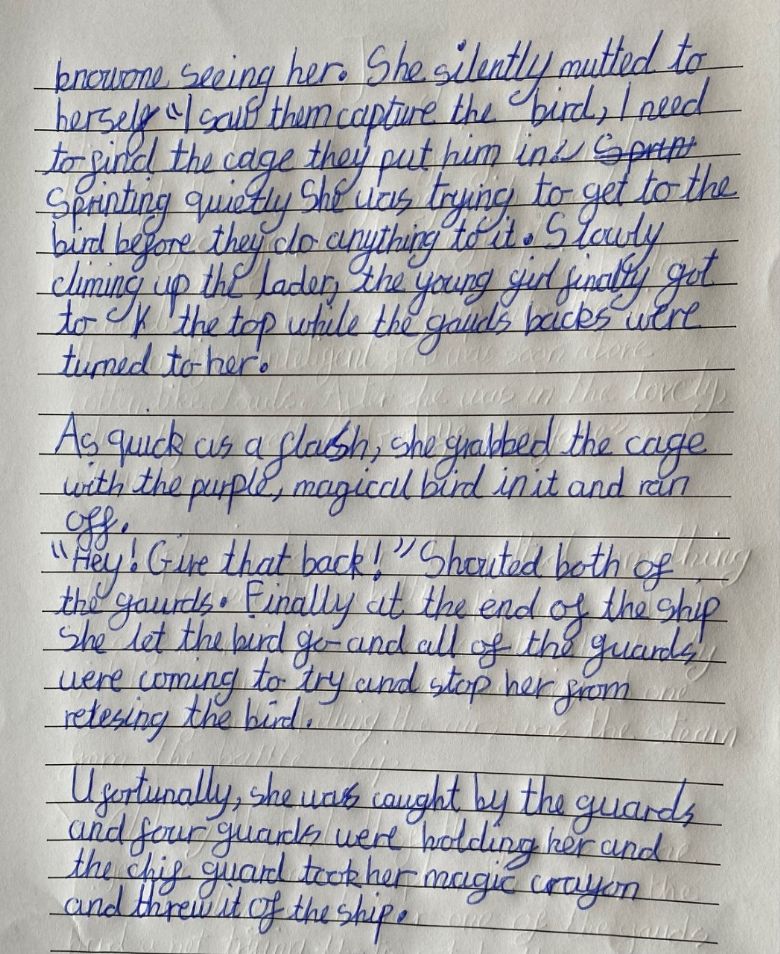 knowone seeing her. She silently mutted to
herself "I saw them capture the bird, I need
to find the cage they put him in" Sprint
Sprinting quietly She was trying to get to the
bird before they do anything to it. Slowly
climing up the lader, the young girl finally got
to the top while the gauds backs were
turned to her.
As quick as a flash, she grabbed the cage
with the purple, magical bird in it and ran
off.
"Hey! Give that back!" Shouted both of
the gaurds. Finally at the end of the ship
She let the bird go and all of the guards
were coming to try and stop her from
relesing the bird.
Ufortunally, she was caught by the guards
and four guards were holding her and
the chif guard took her magic crayon
and threw it of the ship.